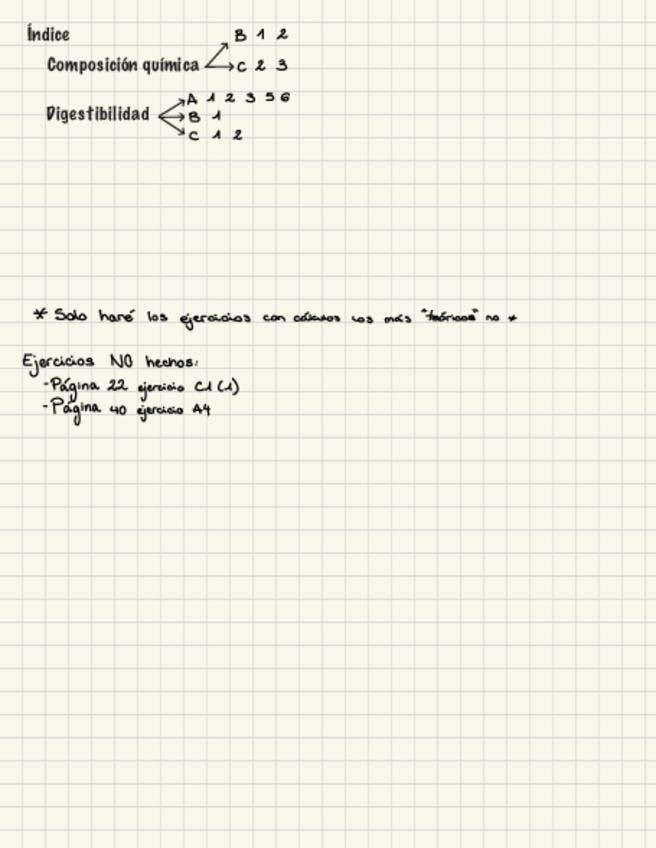 Índice
B 1 2
Composición química C 2 3
A 1 2 3 5 6
Digestibilidad B 1
C 1 2
* Solo haré los ejercicios con cálculos los más "teóricos" no *
Ejercicios NO hechos:
-Página 22 ejercicio C1 (1)
-Página 40 ejercicio A4